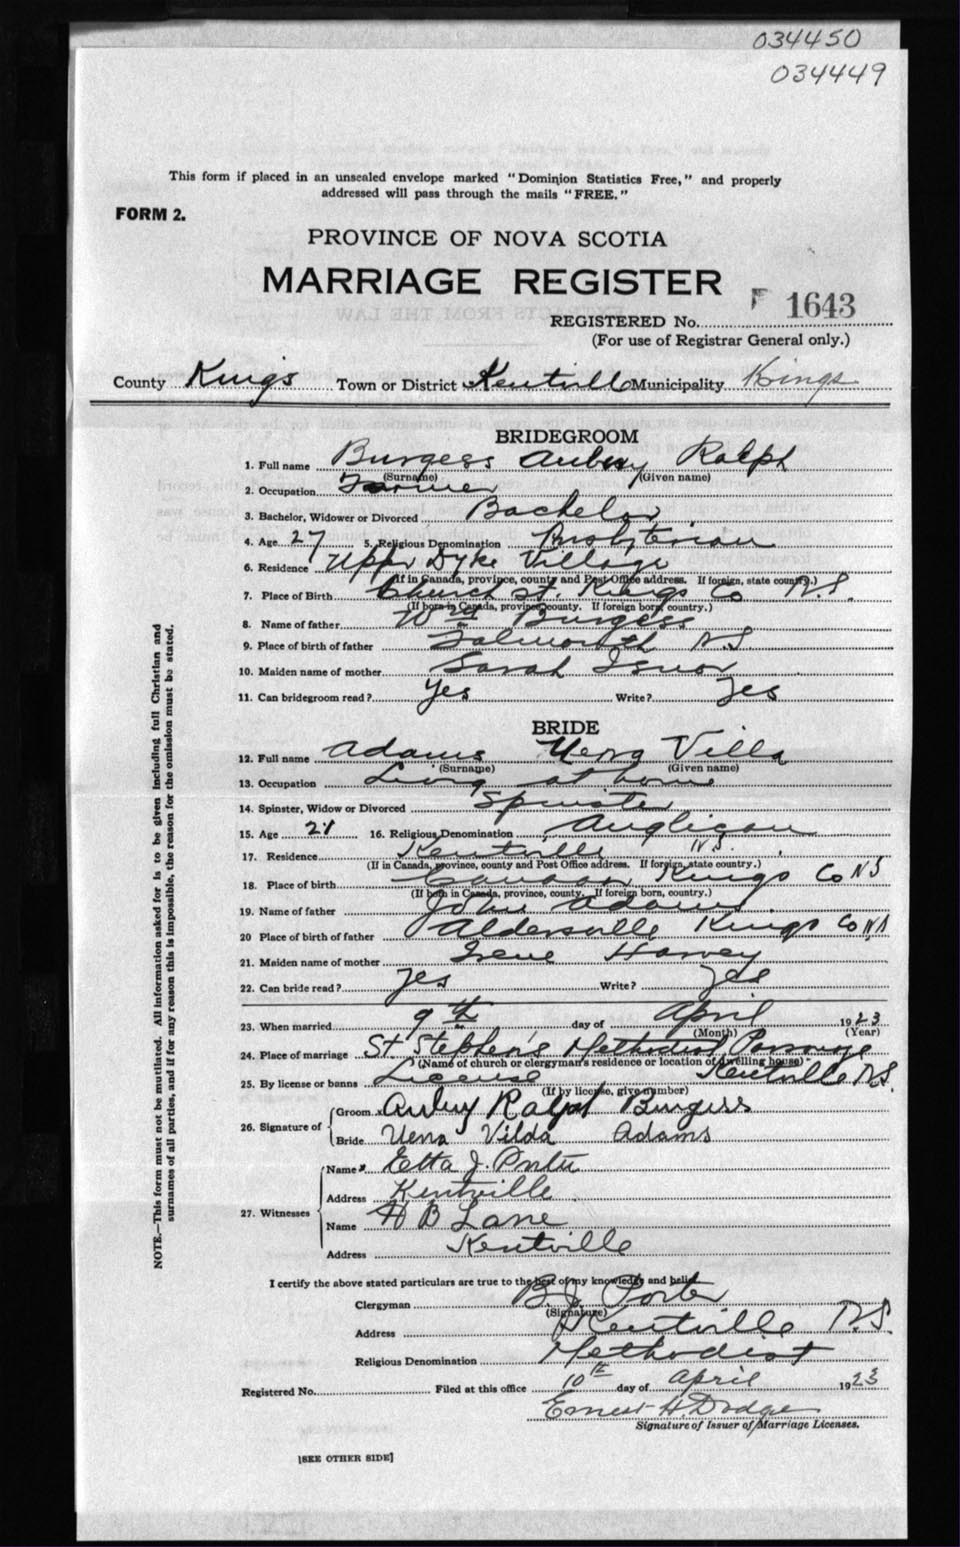 034450
034449
This form if placed in an unsealed envelope marked "Dominion Statistics Free," and properly
addressed will pass through the mails "FREE."
FORM 2.
PROVINCE OF NOVA SCOTIA
MARRIAGE REGISTER
F 1643
REGISTERED No.
(For use of Registrar General only.)
County Kings Town or District Kentville Municipality Kings
BRIDEGROOM
1. Full name Burgess Aubry Ralph
(Surname) (Given name)
2. Occupation Farmer
3. Bachelor, Widower or Divorced Bachelor
4. Age 27 5. Religious Denomination Presbyterian
6. Residence Upper Dyke Village
(If in Canada, province, county and Post Office address. If foreign, state country.)
7. Place of Birth Church St. Kings Co N.S.
(If born in Canada, province, county. If foreign born, country.)
8. Name of father Wm Burgess
9. Place of birth of father Falmouth N.S.
10. Maiden name of mother Sarah Isnor
11. Can bridegroom read? Yes Write? Yes
BRIDE
12. Full name Adams Verna Villa
(Surname) (Given name)
13. Occupation Living at home
14. Spinster, Widow or Divorced Spinster
15. Age 21 16. Religious Denomination Anglican
17. Residence Kentville N.S.
(If in Canada, province, county and Post Office address. If foreign, state country.)
18. Place of birth Canaan Kings Co NS
(If born in Canada, province, county. If foreign born, country.)
19. Name of father John Adams
20 Place of birth of father Aldersville Kings Co NS
21. Maiden name of mother Irene Harvey
22. Can bride read? Yes Write? Yes
23. When married 9th day of April 1923
(Month) (Year)
24. Place of marriage St Stephen's Methodist Parsonage
(Name of church or clergyman's residence or location of dwelling house) Kentville N.S.
25. By license or banns License
(If by license, give number)
26. Signature of Groom Aubry Ralph Burgess
Bride Verna Vilda Adams
27. Witnesses Name Etta J. Porter
Address Kentville
Name H B Lane
Address Kentville
I certify the above stated particulars are true to the best of my knowledge and belief.
Clergyman B J Porter
(Signature)
Address Kentville N.S.
Religious Denomination Methodist
Registered No. Filed at this office 10th day of April 1923
Ernest H. Dodge
Signature of Issuer of Marriage Licenses.
[SEE OTHER SIDE]
NOTE.—This form must not be mutilated. All information asked for is to be given including full Christian and
surnames of all parties, and if for any reason this is impossible, the reason for the omission must be stated.